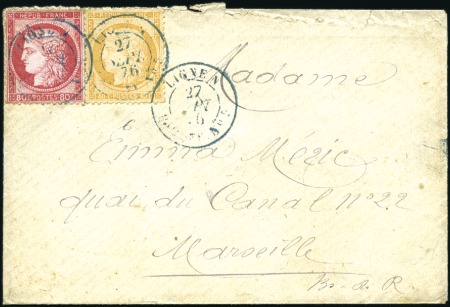 REPUB. FRANC.
80 POSTES 80
LIGNE A
27
SEPT
76
LIGNE A
27
PT
6
Madame
Emma Méric
quai du Canal nº 22
Marseille
B. de R.